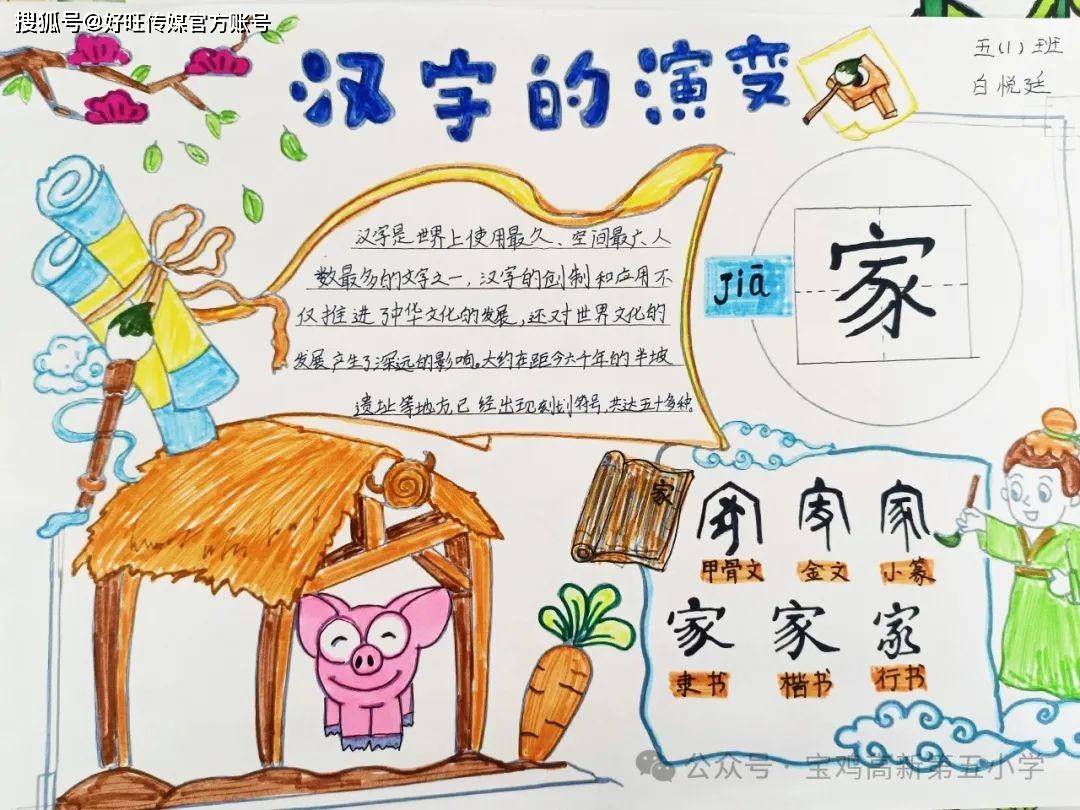 搜狐号@好旺传媒官方账号
汉字的演变
五(1)班
白悦廷
汉字是世界上使用最久、空间最广、人
数最多的文字之一，汉字的创制和应用不
仅推进了中华文化的发展，还对世界文化的
发展产生了深远的影响。大约在距今六千年的半坡
遗址等地方已经出现刻划符号，共达五十多种。
jiā
家
家
家 家 家
甲骨文 金文 小篆
家 家 家
隶书 楷书 行书
公众号·宝鸡高新第五小学